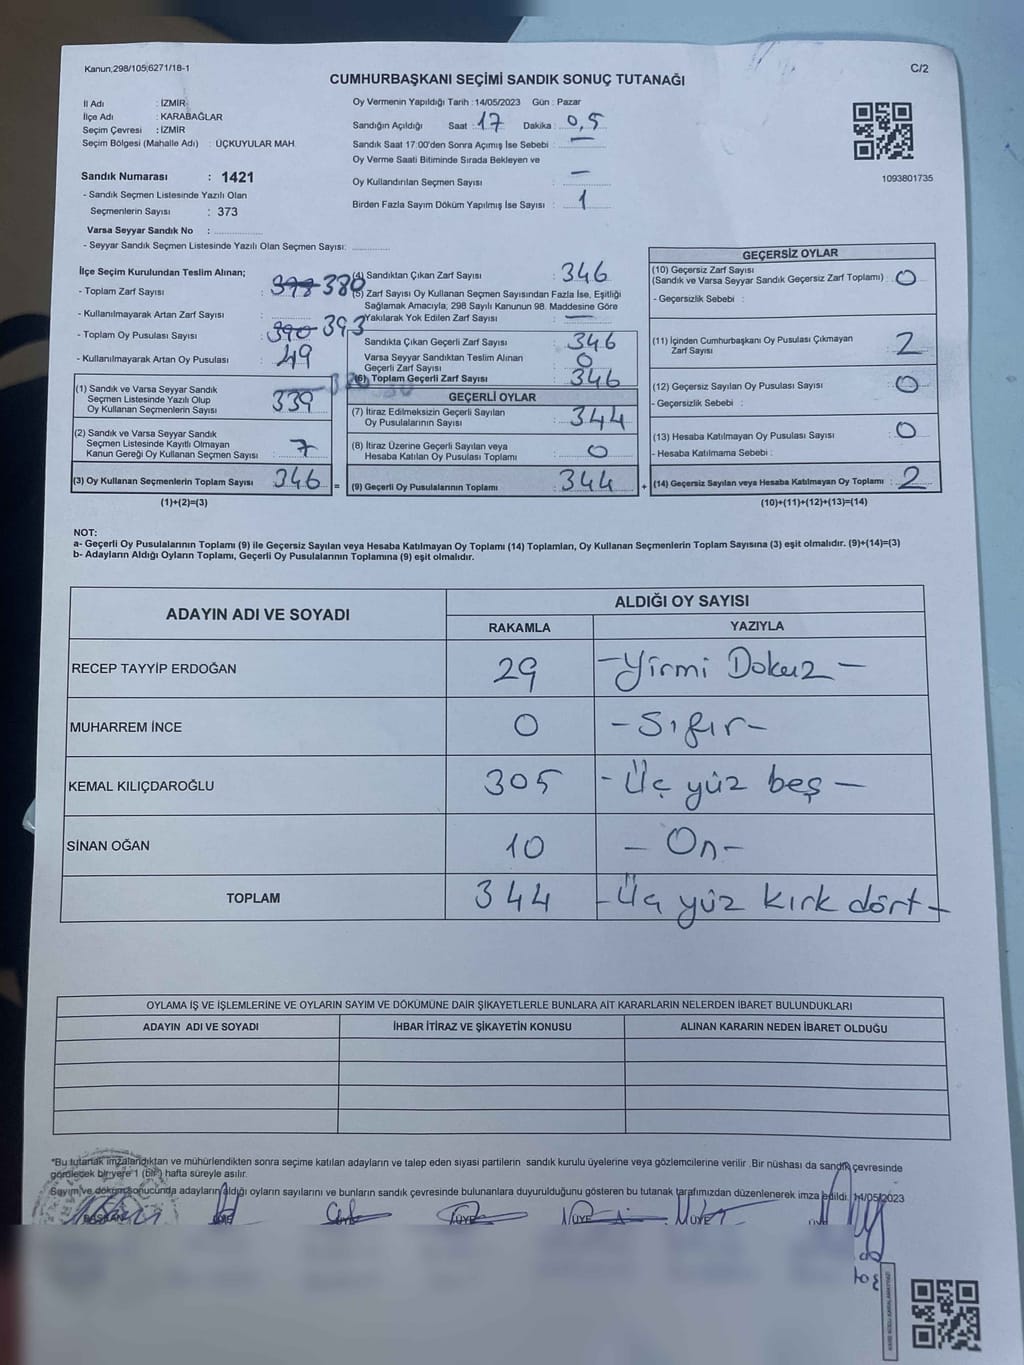 Kanun,298/105;6271/18-1
C/2
CUMHURBAŞKANI SEÇİMİ SANDIK SONUÇ TUTANAĞI
İl Adı : İZMİR
İlçe Adı : KARABAĞLAR
Seçim Çevresi : İZMİR
Seçim Bölgesi (Mahalle Adı) : ÜÇKUYULAR MAH.
Sandık Numarası : 1421
- Sandık Seçmen Listesinde Yazılı Olan
Seçmenlerin Sayısı : 373
Varsa Seyyar Sandık No :
- Seyyar Sandık Seçmen Listesinde Yazılı Olan Seçmen Sayısı:
Oy Vermenin Yapıldığı Tarih :14/05/2023 Gün : Pazar
Sandığın Açıldığı Saat :17 Dakika :0,5
Sandık Saat 17:00'den Sonra Açımış İse Sebebi : —
Oy Verme Saati Bitiminde Sırada Bekleyen ve
Oy Kullandırılan Seçmen Sayısı : —
Birden Fazla Sayım Döküm Yapılmış İse Sayısı : 1
1093801735
İlçe Seçim Kurulundan Teslim Alınan;
- Toplam Zarf Sayısı : 380
- Kullanılmayarak Artan Zarf Sayısı :
- Toplam Oy Pusulası Sayısı : 390 393
- Kullanılmayarak Artan Oy Pusulası : 49
(1) Sandık ve Varsa Seyyar Sandık
Seçmen Listesinde Yazılı Olup
Oy Kullanan Seçmenlerin Sayısı : 339
(2) Sandık ve Varsa Seyyar Sandık
Seçmen Listesinde Kayıtlı Olmayan
Kanun Gereği Oy Kullanan Seçmen Sayısı : 7
(3) Oy Kullanan Seçmenlerin Toplam Sayısı : 346 =
(1)+(2)=(3)
(4) Sandıktan Çıkan Zarf Sayısı : 346
(5) Zarf Sayısı Oy Kullanan Seçmen Sayısından Fazla İse, Eşitliği
Sağlamak Amacıyla, 298 Sayılı Kanunun 98. Maddesine Göre
Yakılarak Yok Edilen Zarf Sayısı : —
Sandıkta Çıkan Geçerli Zarf Sayısı : 346
Varsa Seyyar Sandıktan Teslim Alınan
Geçerli Zarf Sayısı : 0
(6) Toplam Geçerli Zarf Sayısı : 346
GEÇERLİ OYLAR
(7) İtiraz Edilmeksizin Geçerli Sayılan
Oy Pusulalarının Sayısı : 344
(8) İtiraz Üzerine Geçerli Sayılan veya
Hesaba Katılan Oy Pusulası Toplamı : 0
(9) Geçerli Oy Pusulalarının Toplamı : 344 +
GEÇERSİZ OYLAR
(10) Geçersiz Zarf Sayısı
(Sandık ve Varsa Seyyar Sandık Geçersiz Zarf Toplamı) : 0
- Geçersizlik Sebebi :
(11) İçinden Cumhurbaşkanı Oy Pusulası Çıkmayan
Zarf Sayısı : 2
(12) Geçersiz Sayılan Oy Pusulası Sayısı : 0
- Geçersizlik Sebebi :
(13) Hesaba Katılmayan Oy Pusulası Sayısı : 0
- Hesaba Katılmama Sebebi :
(14) Geçersiz Sayılan veya Hesaba Katılmayan Oy Toplamı : 2
(10)+(11)+(12)+(13)=(14)
NOT:
a- Geçerli Oy Pusulalarının Toplamı (9) ile Geçersiz Sayılan veya Hesaba Katılmayan Oy Toplamı (14) Toplamları, Oy Kullanan Seçmenlerin Toplam Sayısına (3) eşit olmalıdır. (9)+(14)=(3)
b- Adayların Aldığı Oyların Toplamı, Geçerli Oy Pusulalarının Toplamına (9) eşit olmalıdır.
ADAYIN ADI VE SOYADI
ALDIĞI OY SAYISI
RAKAMLA YAZIYLA
RECEP TAYYİP ERDOĞAN 29 -Yirmi Dokuz-
MUHARREM İNCE 0 -Sıfır-
KEMAL KILIÇDAROĞLU 305 -Üç yüz beş-
SİNAN OĞAN 10 -On-
TOPLAM 344 -Üç yüz kırk dört-
OYLAMA İŞ VE İŞLEMLERİNE VE OYLARIN SAYIM VE DÖKÜMÜNE DAİR ŞİKAYETLERLE BUNLARA AİT KARARLARIN NELERDEN İBARET BULUNDUKLARI
ADAYIN ADI VE SOYADI İHBAR İTİRAZ VE ŞİKAYETİN KONUSU ALINAN KARARIN NEDEN İBARET OLDUĞU
*Bu tutanak imzalandıktan ve mühürlendikten sonra seçime katılan adayların ve talep eden siyasi partilerin sandık kurulu üyelerine veya gözlemcilerine verilir .Bir nüshası da sandık çevresinde
görülecek bir yere 1 (bir) hafta süreyle asılır.
Sayım ve döküm sonucunda adayların aldığı oyların sayılarını ve bunların sandık çevresinde bulunanlara duyurulduğunu gösteren bu tutanak tarafımızdan düzenlenerek imza edildi. 14/05/2023
BAŞKAN ÜYE ÜYE ÜYE ÜYE ÜYE ÜYE